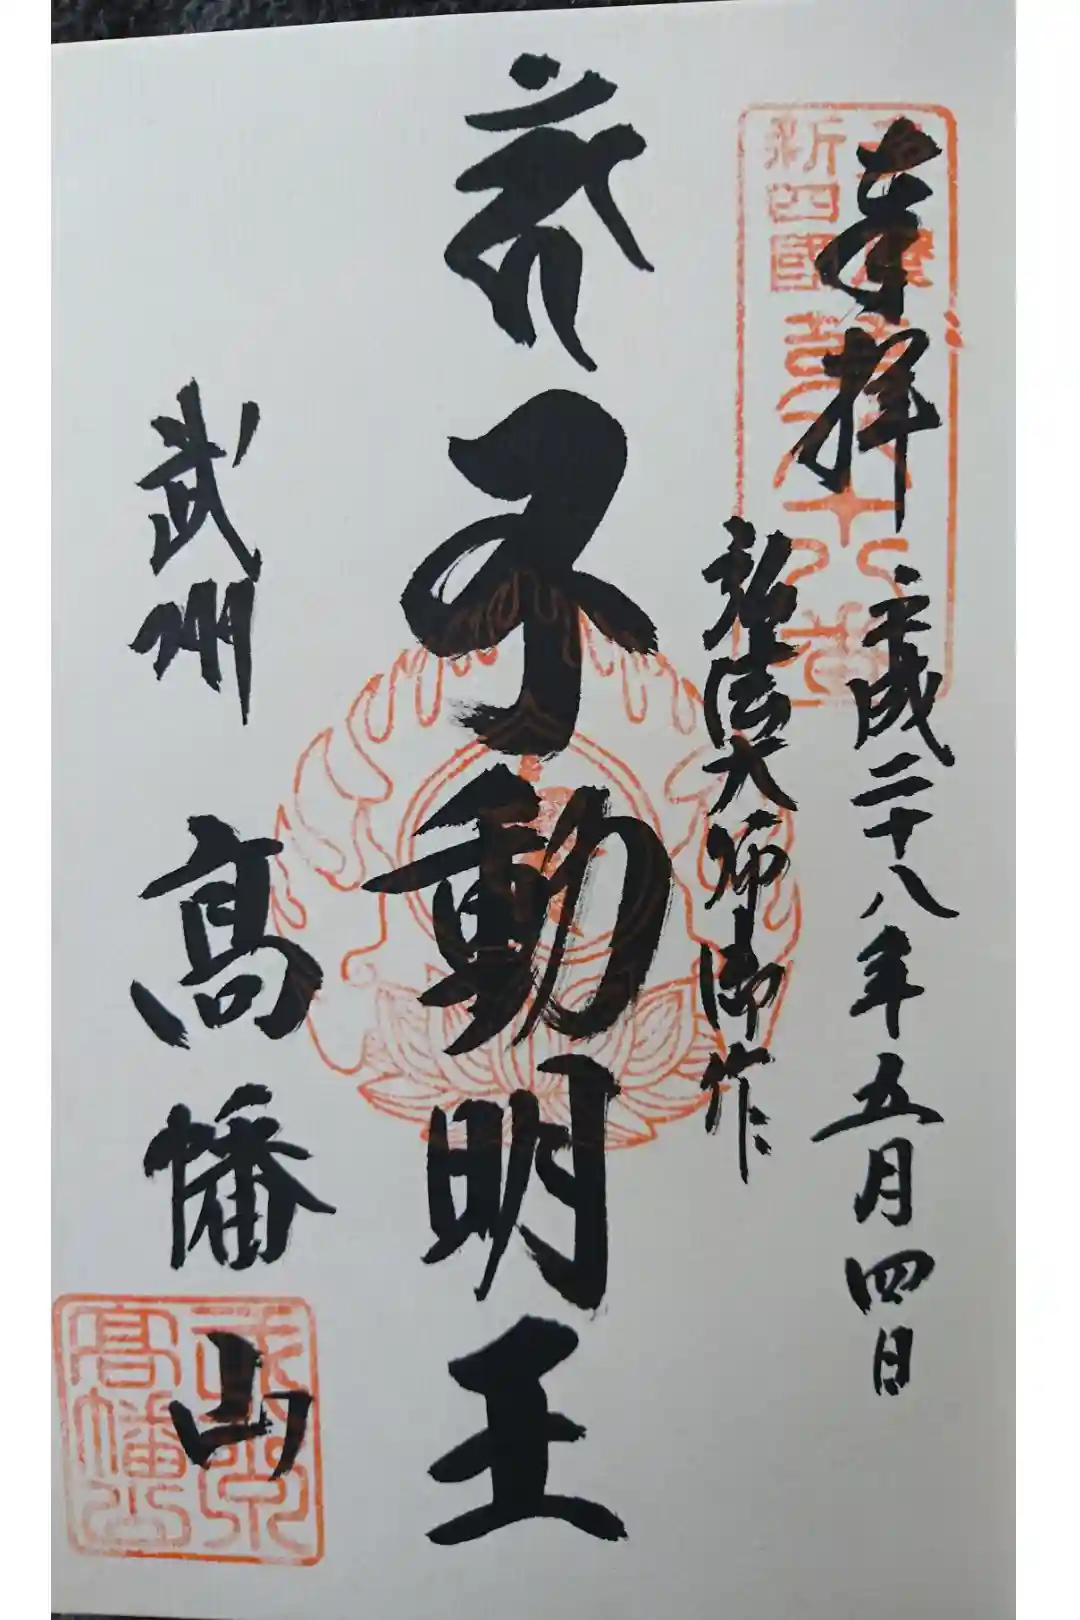 奉拝
平成二十八年五月四日
新四國
弘法大師御作
不動明王
武州
髙幡
山
髙幡山